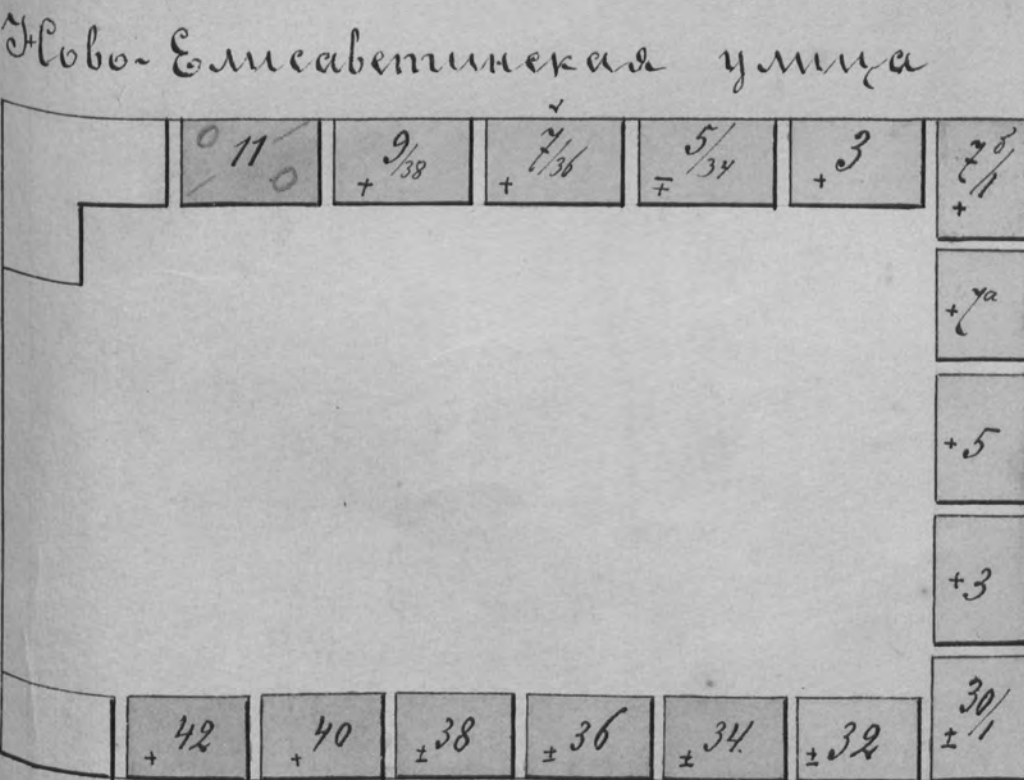 Ново-Елисаветинская улица
11 + 9/38 + 7/36 ∓ 5/34 + 3 + 7б/1
+ 7а
+ 5
+ 3
+ 42 + 40 ± 38 ± 36 ± 34 ± 32 ± 30/1